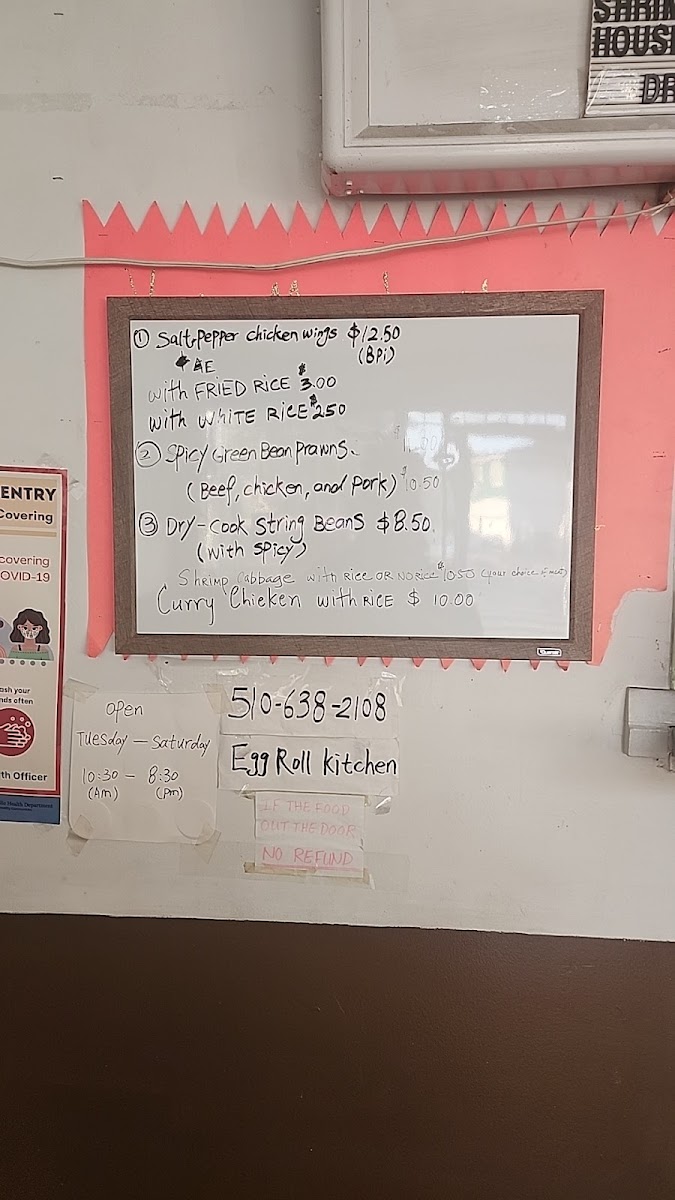 SHRIM
HOUS
DR
① Salt & Pepper chicken wings $12.50
(8pi)
with FRIED RICE $3.00
with WHITE RICE $2.50
② Spicy Green Bean Prawns.
(Beef, chicken, and Pork) $10.50
③ Dry-Cook String Beans $8.50
(with SPicy)
Shrimp Cabbage with RICE OR NO RICE $10.50 (your choice of meat)
Curry Chicken with RICE $ 10.00
ENTRY
Covering
covering
OVID-19
ash your
nds often
th Officer
lic Health Department
open
Tuesday - Saturday
10:30 - 8:30
(Am) (pm)
510-638-2108
Egg Roll kitchen
IF THE FOOD
OUT THE DOOR
NO REFUND